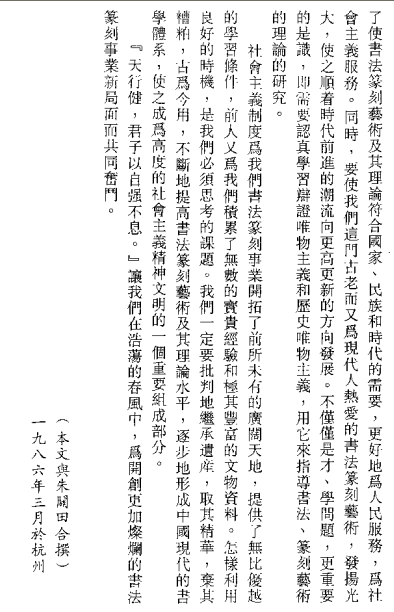 了使書法篆刻藝術及其理論符合國家、民族和時代的需要，更好地爲人民服務，爲社
會主義服務。同時，要使我們這門古老而又爲現代人熱愛的書法篆刻藝術，發揚光
大，使之順着時代前進的潮流向更高更新的方向發展。不僅僅是才、學問題，更重要
的是識，即需要認真學習辯證唯物主義和歷史唯物主義，用它來指導書法、篆刻藝術
的理論的研究。
社會主義制度爲我們書法篆刻事業開拓了前所未有的廣闊天地，提供了無比優越
的學習條件，前人又爲我們積累了無數的寶貴經驗和極其豐富的文物資料。怎樣利用
良好的時機，是我們必須思考的課題。我們一定要批判地繼承遺産，取其精華，棄其
糟粕，古爲今用，不斷地提高書法篆刻藝術及其理論水平，逐步地形成中國現代的書
學體系，使之成爲高度的社會主義精神文明的一個重要組成部分。
『天行健，君子以自强不息。』讓我們在浩蕩的春風中，爲開創更加燦爛的書法
篆刻事業新局面而共同奮鬥。
（本文與朱關田合撰）
一九八六年三月於杭州